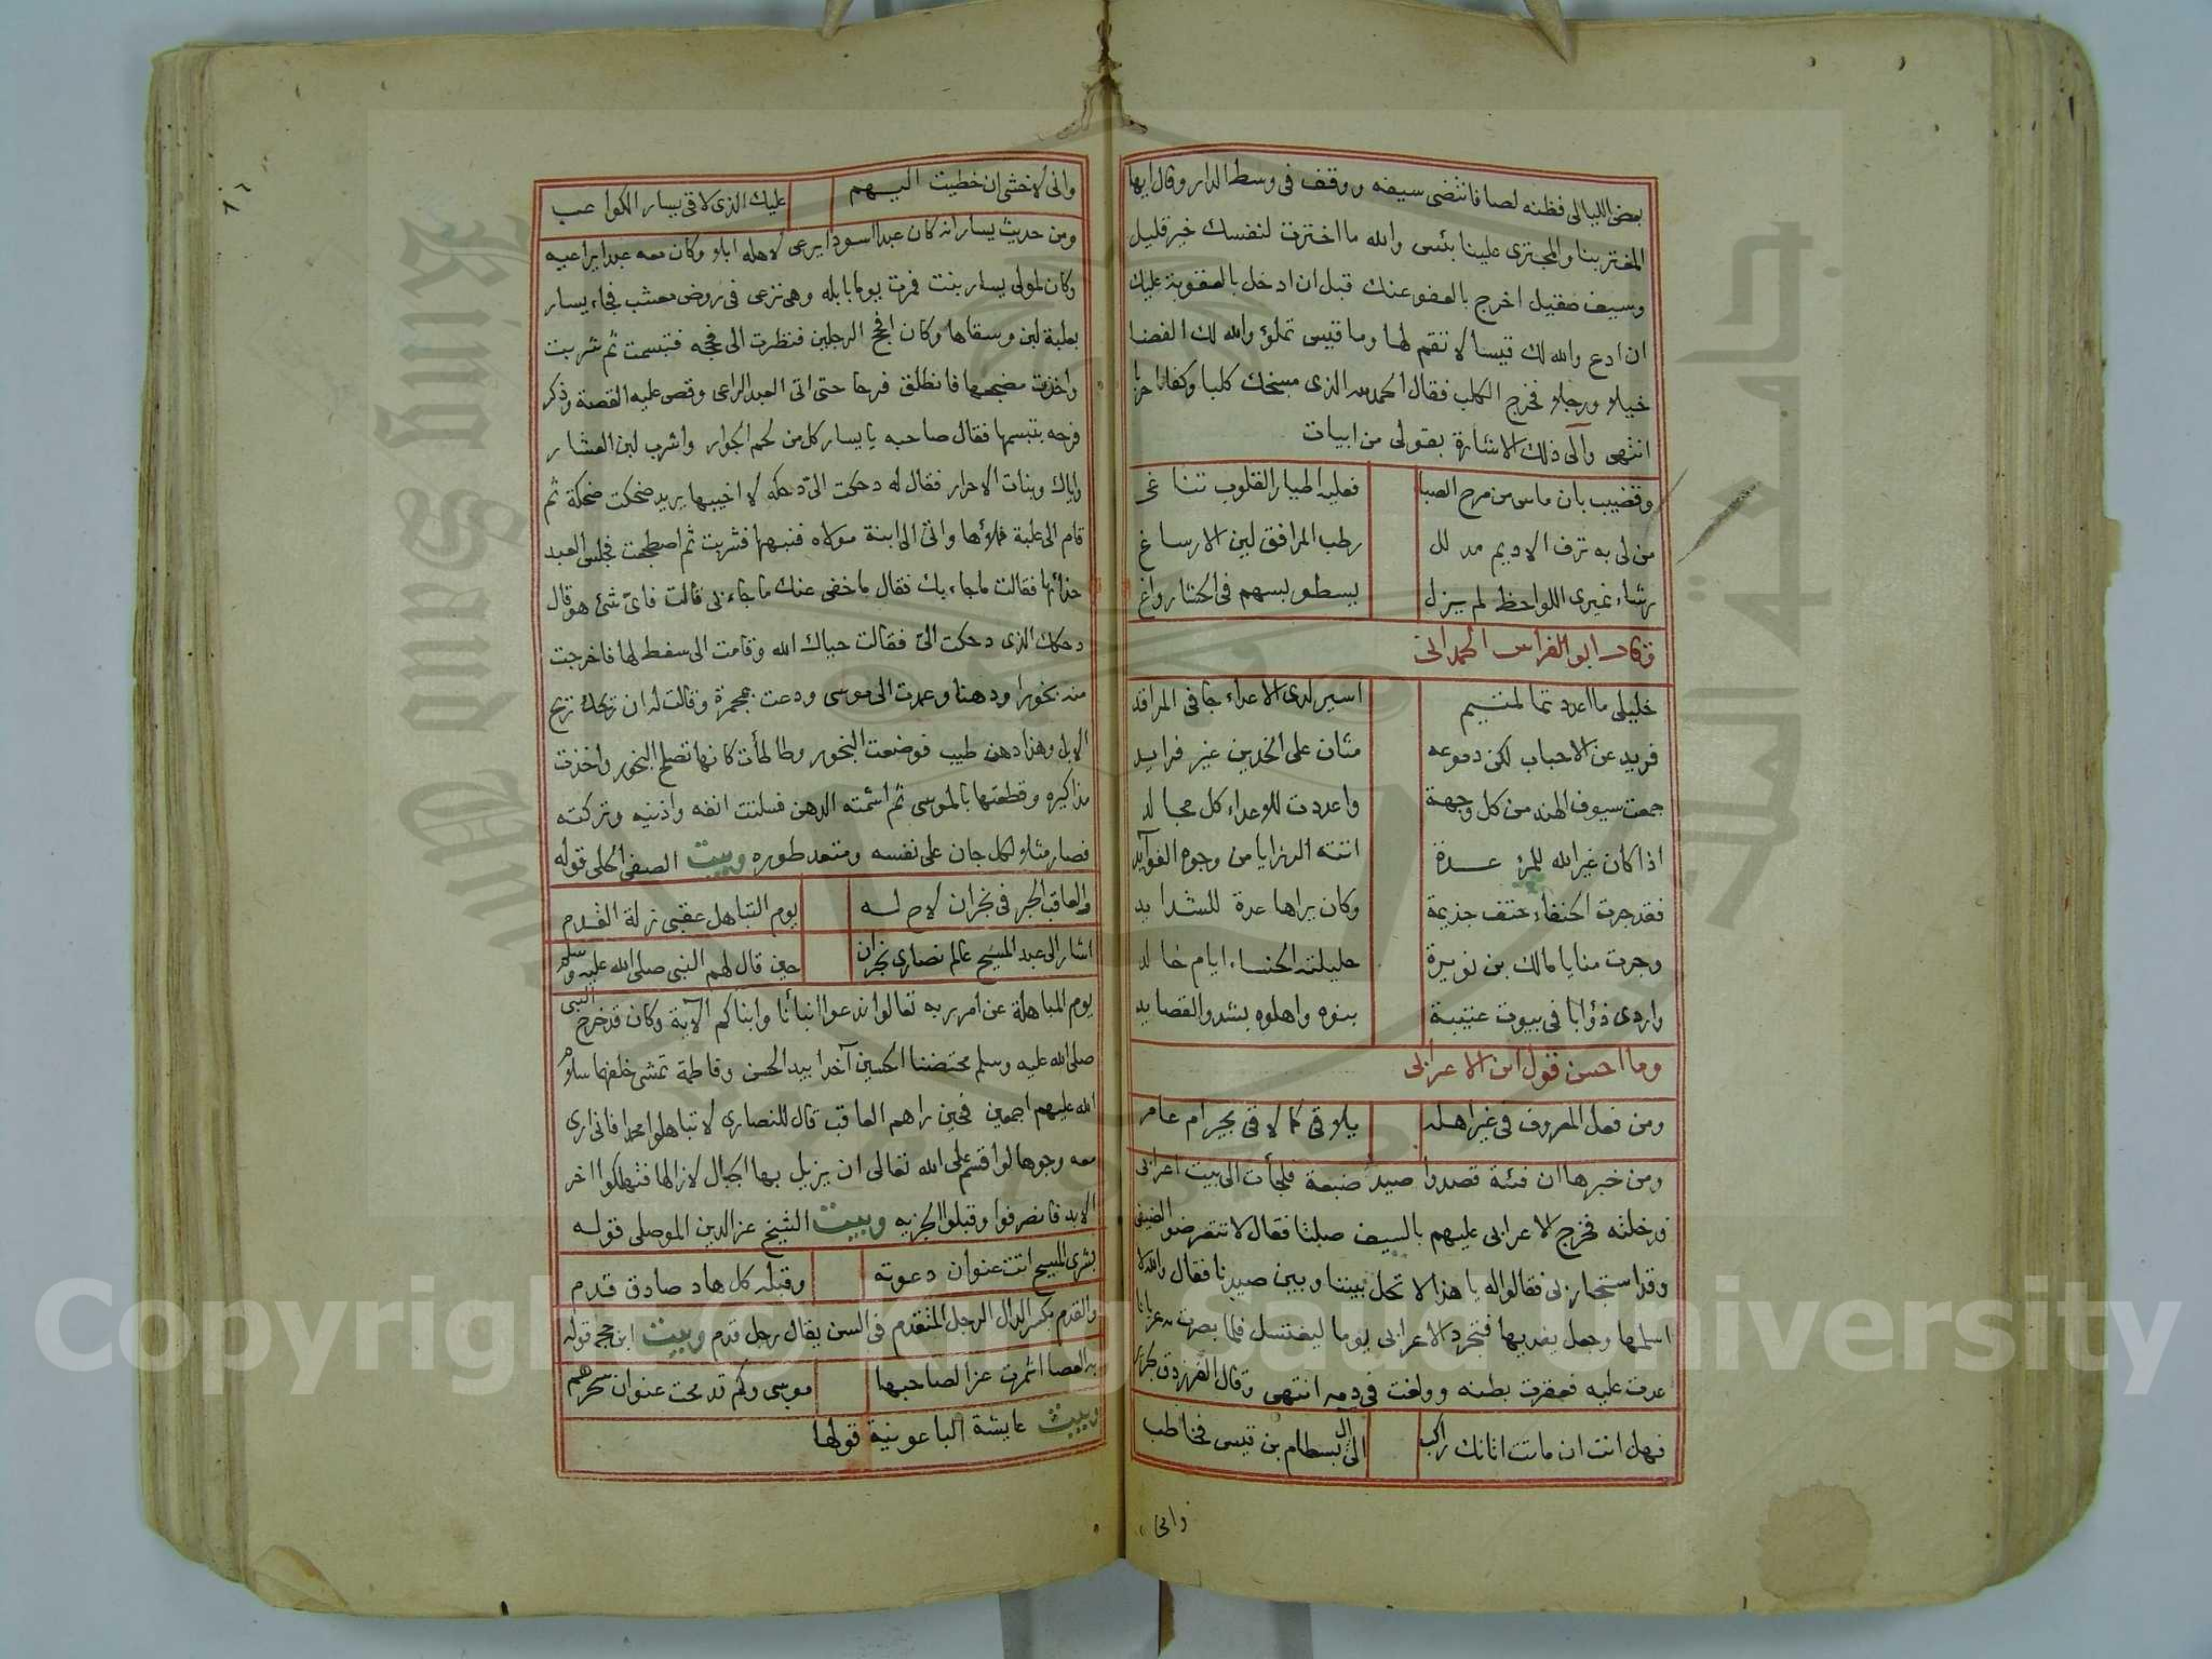 بعض الليالى فظنه لصا فانتضى سيفه ووقف فى وسط الدار وقال ايها
المغتر بنا والمجترى علينا بئس والله ما اخترت لنفسك خير قليل
وسيف صقيل اخرج بالعفو عنك قبل ان ادخل بالعقوبة عليك
ان ادع والله لك قيسا لا تقم لها وما قيس تملؤ والله لك الفضا
خيلا ورجلا فخرج الكلب فقال الحمد لله الذى مسخك كلبا وكفانا حربا
انتهى والى ذلك الاشارة بقولى من ابيات
وقضيب بان ماس من مرح الصبا فعليه اطيار القلوب تناغى
من لى به ترف الاديم مدلل رطب المرافق لين الارساغ
رشاء نميرى اللواحظ لم يزل يسطو بسهم فى الحشا رواغ
وقال ابو الفراس الحمدانى
خليلى ما اعددتما لمتيم اسير لدى الاعداء جافى المراقد
فريد عن الاحباب لكن دموعه مثان على الخدين غير فرايد
جمعت سيوف الهند من كل وجهة واعددت للاعداء كل مجالد
اذا كان غير الله للمرء عدة اتته الرزايا من وجوه الفوآيد
فقد جرت الحنفاء حتف حذيمة وكان يراها عدة للشدايد
وجرت منايا مالك بن نويرة حليلته الحنساء ايام خالد
واردى ذؤابا فى بيوت عتيبة بنوه واهلوه بشدو القصايد
وما احسن قول ابن الاعرابى
ومن فعل المعروف فى غير اهله يلاقى كما لاقى مجير ام عامر
ومن خبرها ان فئة قصدوا صيد ضبعة فلجأت الى بيت اعرابى
ودخلته فخرج الاعرابى عليهم بالسيف صلتا فقال لا تتعرضوا لضيفى
وقد استجار بى فقالوا له يا هذا لا تحل بيننا وبين صيدنا فقال والله لا
اسلمها وجعل يغديها فتجرد الاعرابى يوما ليغتسل فلما بصرت به عريانا
عدت عليه فعقرت بطنه وولغت فى دمه انتهى وقال الفرزدق لجرير
فهل انت ان ماتت اتانك راكب الى آل بسطام بن قيس فخاطب
وانى
٨٦
وانى لاخشى ان خطبت اليهم عليك الذى لاقى يسار الكواعب
ومن حديث يسار انه كان عبدا اسود ايرعى لاهله ابلا وكان معه عبد يراعيه
وكان لمولى يسار بنت فمرت يوما بابله وهى ترعى فى روض معشب فجاء يسار
بعلبة لبن وسقاها وكان افحج الرجلين فنظرت الى فحجه فتبسمت ثم شربت
واخذت مضجعها فانطلق فرحا حتى اتى العبد الراعى وقص عليه القصة وذكر
فرحه بتبسمها فقال صاحبه يا يسار كل من لحم الحوار واشرب لبن العشار
واياك وبنات الاحرار فقال له دحكت الى دحكة لا اخيبها يريد ضحكت ضحكة ثم
قام الى علبة فملأها واتى الى ابنة مولاه فنبهها فشربت ثم اضطجعت فجلس العبد
حذائها فقالت ما جاء بك فقال ما خفى عنك ما جاء بى قالت فاى شئ هو قال
دحكك الذى دحكت الى فقالت حياك الله وقامت الى سفط لها فاخرجت
منه بخورا ودهنا وعمدت الى موسى ودعت بمجمرة وقالت له ان ريحك ريح
الابل وهذا دهن طيب فوضعت البخور وطالمأت كانها تصلح البخور واخذت
مذاكيره وقطعتها بالموسى ثم اشمته الدهن فسلتت انفه واذنيه وتركته
فصار مثلا لكل جان على نفسه ومتعد طوره وبيت الصفى الحلى قوله
والعاقب الحبر فى نجران لاح له يوم التباهل عقبى زلة القدم
اشار الى عبد المسيح عالم نصارى نجران حين قال لهم النبى صلى الله عليه وسلم
يوم المباهلة عن امر ربه تعالوا ندعوا ابنأنا وابناكم الآية وكان قد خرج النبى
صلى الله عليه وسلم محتضنا الحسين آخذا بيد الحسن وفاطمة تمشى خلفهما سلام
الله عليهم اجمعين فحين راهم العاقب قال للنصارى لا تباهلوا محمدا فانى ارى
معه وجوها لو اقسم على الله تعالى ان يزيل بها الجبال لازالها فتهلكوا اخر
الابد فانصرفوا وقبلوا الجزيه وبيت الشيخ عز الدين الموصلى قوله
بشرى المسيح اتت عنوان دعوته وقبله كل هاد صادق قدم
والقدم بكسر الدال الرجل المتقدم فى السن يقال رجل قدم وبيت ابن حجه قوله
به العصا اثمرت عزا لصاحبها موسى وكم قد محت عنوان سحرهم
وبيت عايشة الباعونية قولها